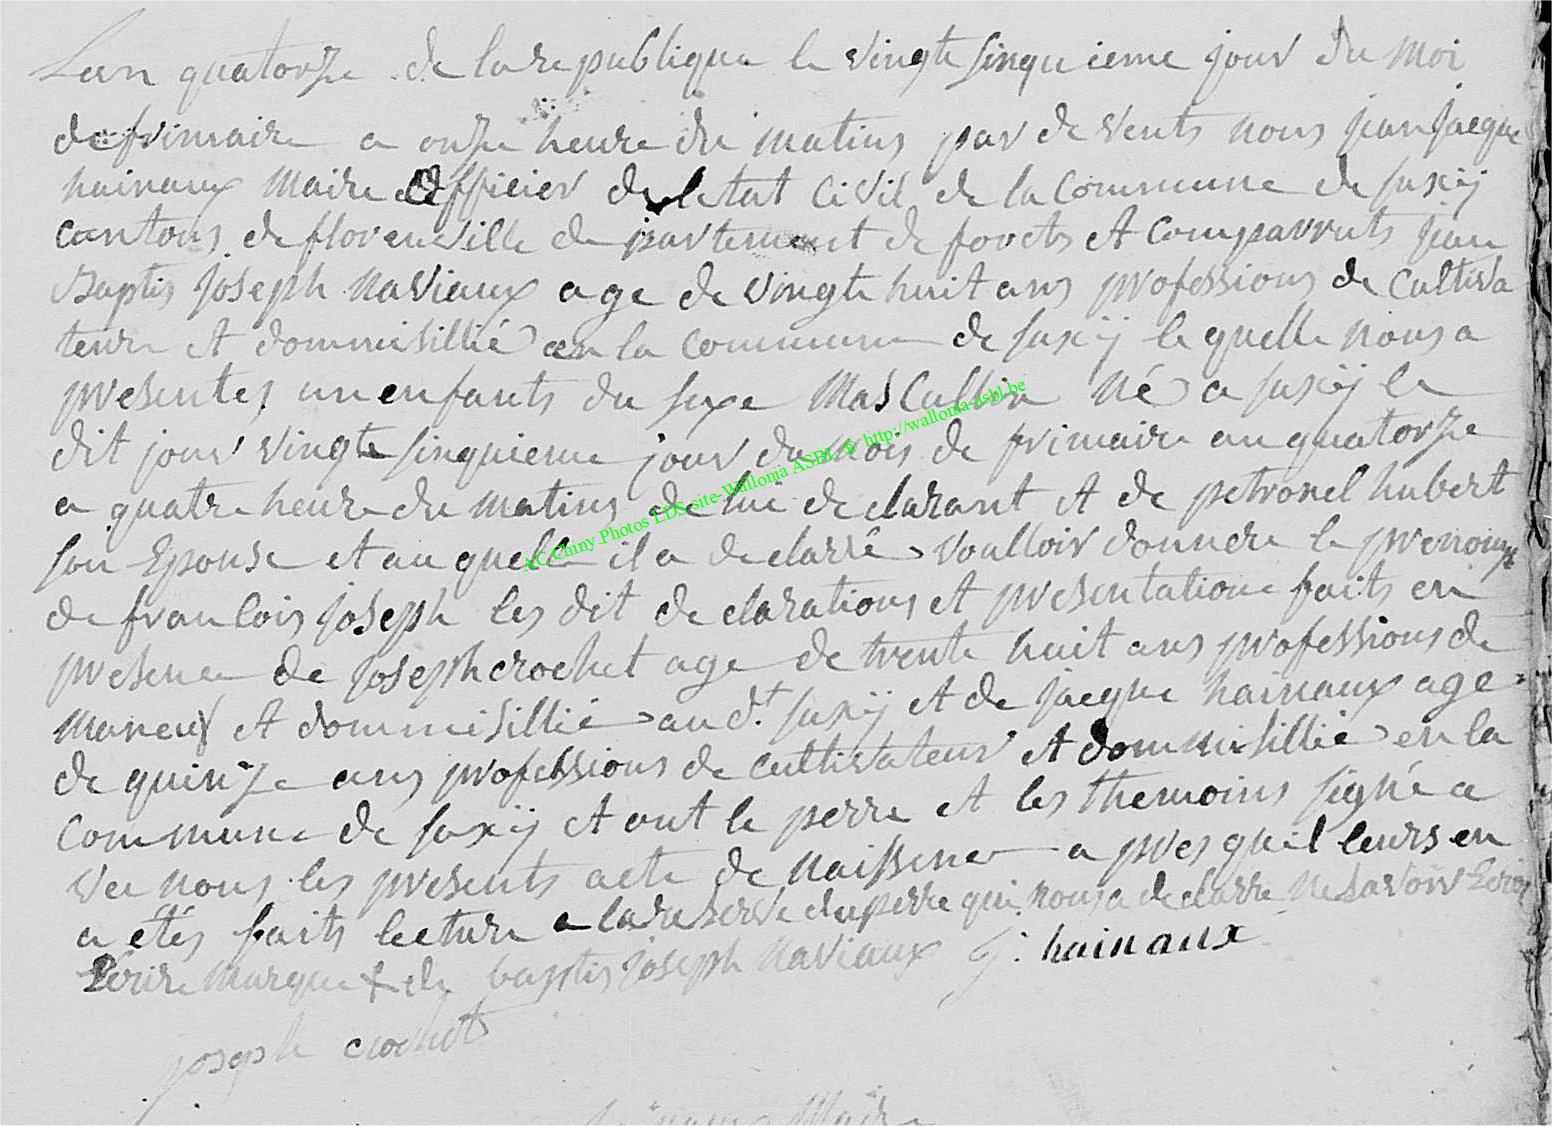 Lan quatorze de la republique le vingte sinquieme jour du moi
de frimaire a onze heure du matins par de vents nous jean jacque
hainaux maire officier de letat civil de la commune de suxÿ
cantons de florenville de partement de forets et comparruts jean
Baptis joseph naviaux age de vingte huit ans professions de cultiva
teure et dommisillié en la commune de suxÿ le quelle nous a
presentes un enfants du sexe mascullin né a suxÿ le
dit jour vingte sinquieme jour du mois de frimaire an quatorze
a quatre heure du matins de lui declarant et de petronel hubert
son Epouse et au quelle il a declarré voulloir donnere le prenoms
de francois joseph les dit declarations et presentatione faits en
presence de joseph crochet age de trente huit ans professions de
maneuf et dommisillié au d.t suxÿ et de jacque hainaux age
de quinze ans professions de cultivateur et dommisillié en la
commune de suxÿ et ont le perre et les themoins signé a
vec nous les presents acte de naissence a pres quil leurs en
a étés faits lecture a la reserve du perre qui nous a declarre ne savoir Ecrir
Ecrire marque de baptis joseph naviaux J: hainaux
joseph crochet
hainaux Maire
AC Chiny Photos LDS site-Wallonia ASBL & http://wallonia-asbl.be